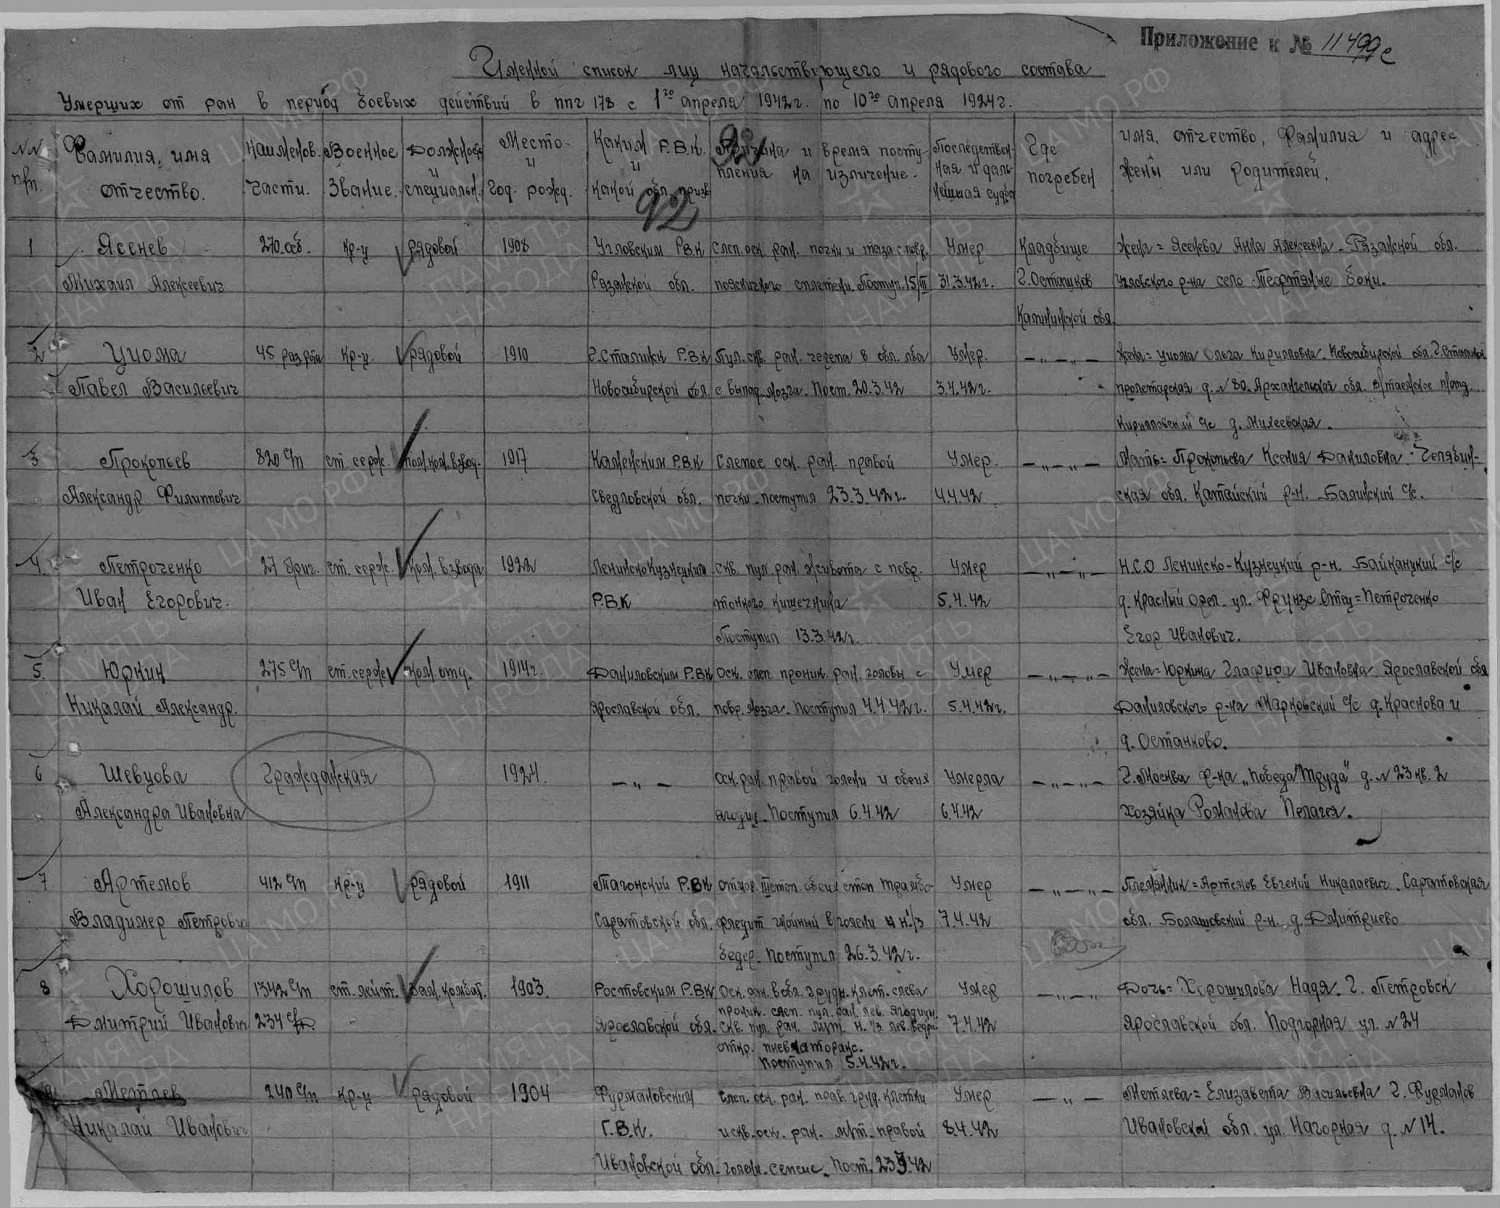 Приложение к № 11499с
Именной список лиц начальствующего и рядового состава
Умерших от ран в период боевых действий в ппг 178 с 1го апреля 1942г. по 10го апреля 1924г.
№№ п/п. Фамилия, имя отчество. Наименов. части. Военное звание. Должность и специальн. Место и год. рожд. Каким Р.В.К. и какой обл. призв. 92 и время поступления на излечение. Последственная и дальнейшая судьба Где погребен имя, отчество, фамилия и адрес жены или родителей.
92
1 Ясенев 270. об. кр-ц рядовой 1908 Угловским Р.В.К слеп. оск. ран. почки и таза с повр. Умер Кладбище жена = Ясенева Анна Алексеевна - Рязанской обл.
Михаил Алексеевич Рязанской обл. поясничного сплетени. Поступ. 15/III 31.3.42г. г. Осташков Угловского р-на село
Калининской обл.
2 Уиома 45 раз рота кр-ц. рядовой 1910 г. Сталинк Р.В.К Пул. скв. ран. черепа в обл. лба Умер. — „ — „ — жена = Уиома Ольга Кирилловна. Новосибирской обл. г. Сталинск
Павел Васильевич Новосибирской обл с выпад. мозга. Пост. 20.3.42 3.4.42г. пролетарская д. № 80. Архангельская обл.
Кирилловский с/с д. Михеевская.
3 Прокопьев 820 с/п ст. серж. пом. ком. взвод. 1917 Каменским Р.В.К Слепое оск. ран. правой Умер. — „ — „ — Мать = Прокопьева Ксения Даниловна - Челябин-
Александр Филиппович Свердловской обл. почки - поступил 23.3.42г. 4.4.42 ская обл. Катайский р-н. Балинский с/с.
4. Петроченко 27 бриг. ст. серж. ком. взвода 1922 Ленинско Кузнецким скв. пул. ран. живота с повр. Умер — „ — „ — Н.С.О Ленинско-Кузнецкий р-н. Байкацкий с/с
Иван Егорович. Р.В.К тонкого кишечника 5.4.42 д. Красный Орел. ул. Фрунзе. Отец = Петроченко
Поступил 13.3.42г. Егор Иванович.
5. Юркин 275 с/п ст. серж ком. отд. 1914г. Даниловским Р.В.К Оск. слеп. проник. ран. головы с Умер — „ — „ — жена = Юркина Глафира Ивановна Ярославской обл
Николай Александр. Ярославской обл. повр. мозга. Поступил 4.4.42г. 5.4.42г. Даниловского р-на Марковский с/с д. Краснова и
д. Останково.
6 Шевцова Гражданская 1924. — „ — оск. ран. правой голени и обеих Умерла — „ — „ — г. Москва р-на „Победа Труда" д. № 23 кв. 2
Александра Ивановна ягодиц. Поступил 6.4.42 6.4.42 Хозяйка Романова Пелагея.
7 Артемов 412 с/п кр-ц рядовой 1911 Тагонский Р.В.К отмор. III степ. обеих стоп Умер — „ — „ — Племянник = Артемов Евгений Николаевич. Саратовская
Владимер Петрович Саратовской обл. флебит гнойный в голени и н. 1/3 7.4.42 обл. Болашовский р-н. д. Дмитриево
бедер. Поступил 26.3.42г.
8 Хорошилов 1342 с/п ст. лейт. зам. комбат. 1903. Ростовским Р.В.К Оск. ран. в обл. грудн. клет. слева Умер — „ — „ — Дочь = Хорошилова Надя. г. Петровск
проник. слеп. пул. ран. лев. ягодицы.
Дмитрий Иванович 234 с/д Ярославской обл. скв. пул. ран. мяг. н. 1/3 лев. бедра 7.4.42 Ярославской обл. Подгорная ул. № 24
откр. пневматоракс.
Поступил 5.4.42г.
Метлев 240 с/п кр-ц рядовой 1904 Фурмановским слеп. оск. ран. прав. груд. клетки Умер — „ — Метлева = Елизавета Васильевна г. Фурманов
Николай Иванович Г.В.К. и скв. оск. ран. мяг. правой 8.4.42 Ивановской обл. ул. Нагорная д. № 14.
Ивановской обл. голени - сепсис. Пост. 23.3.42